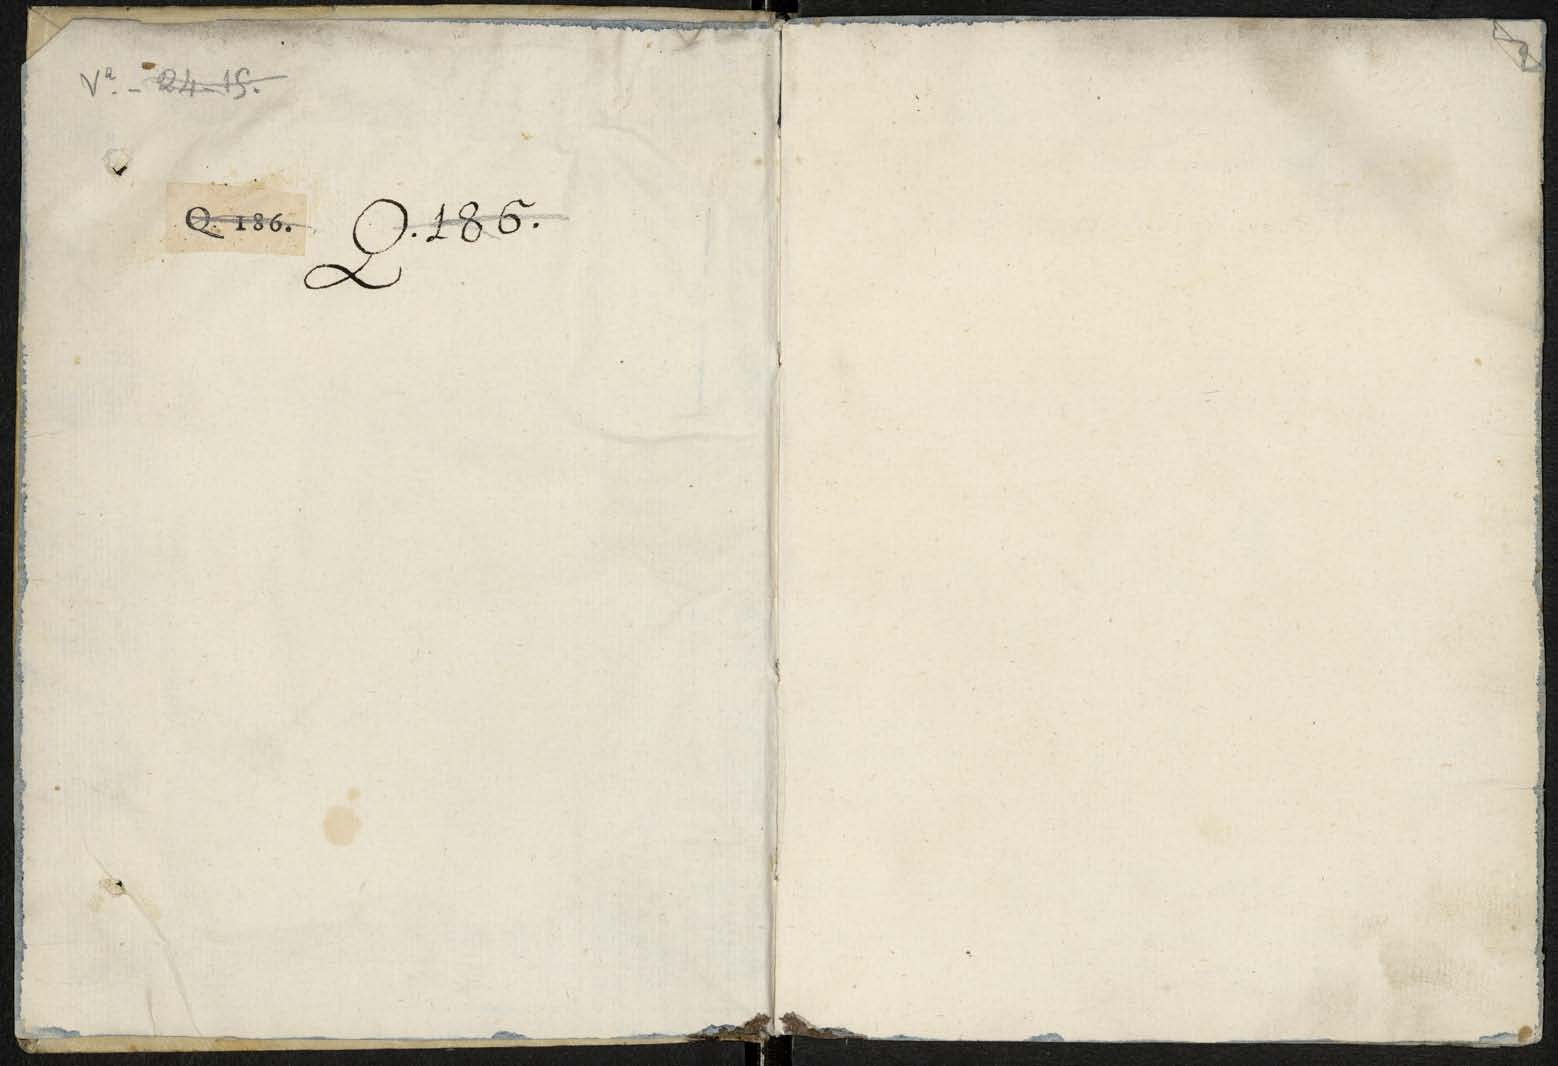 Vª. - 24-15.
Q. 186. Q. 186.